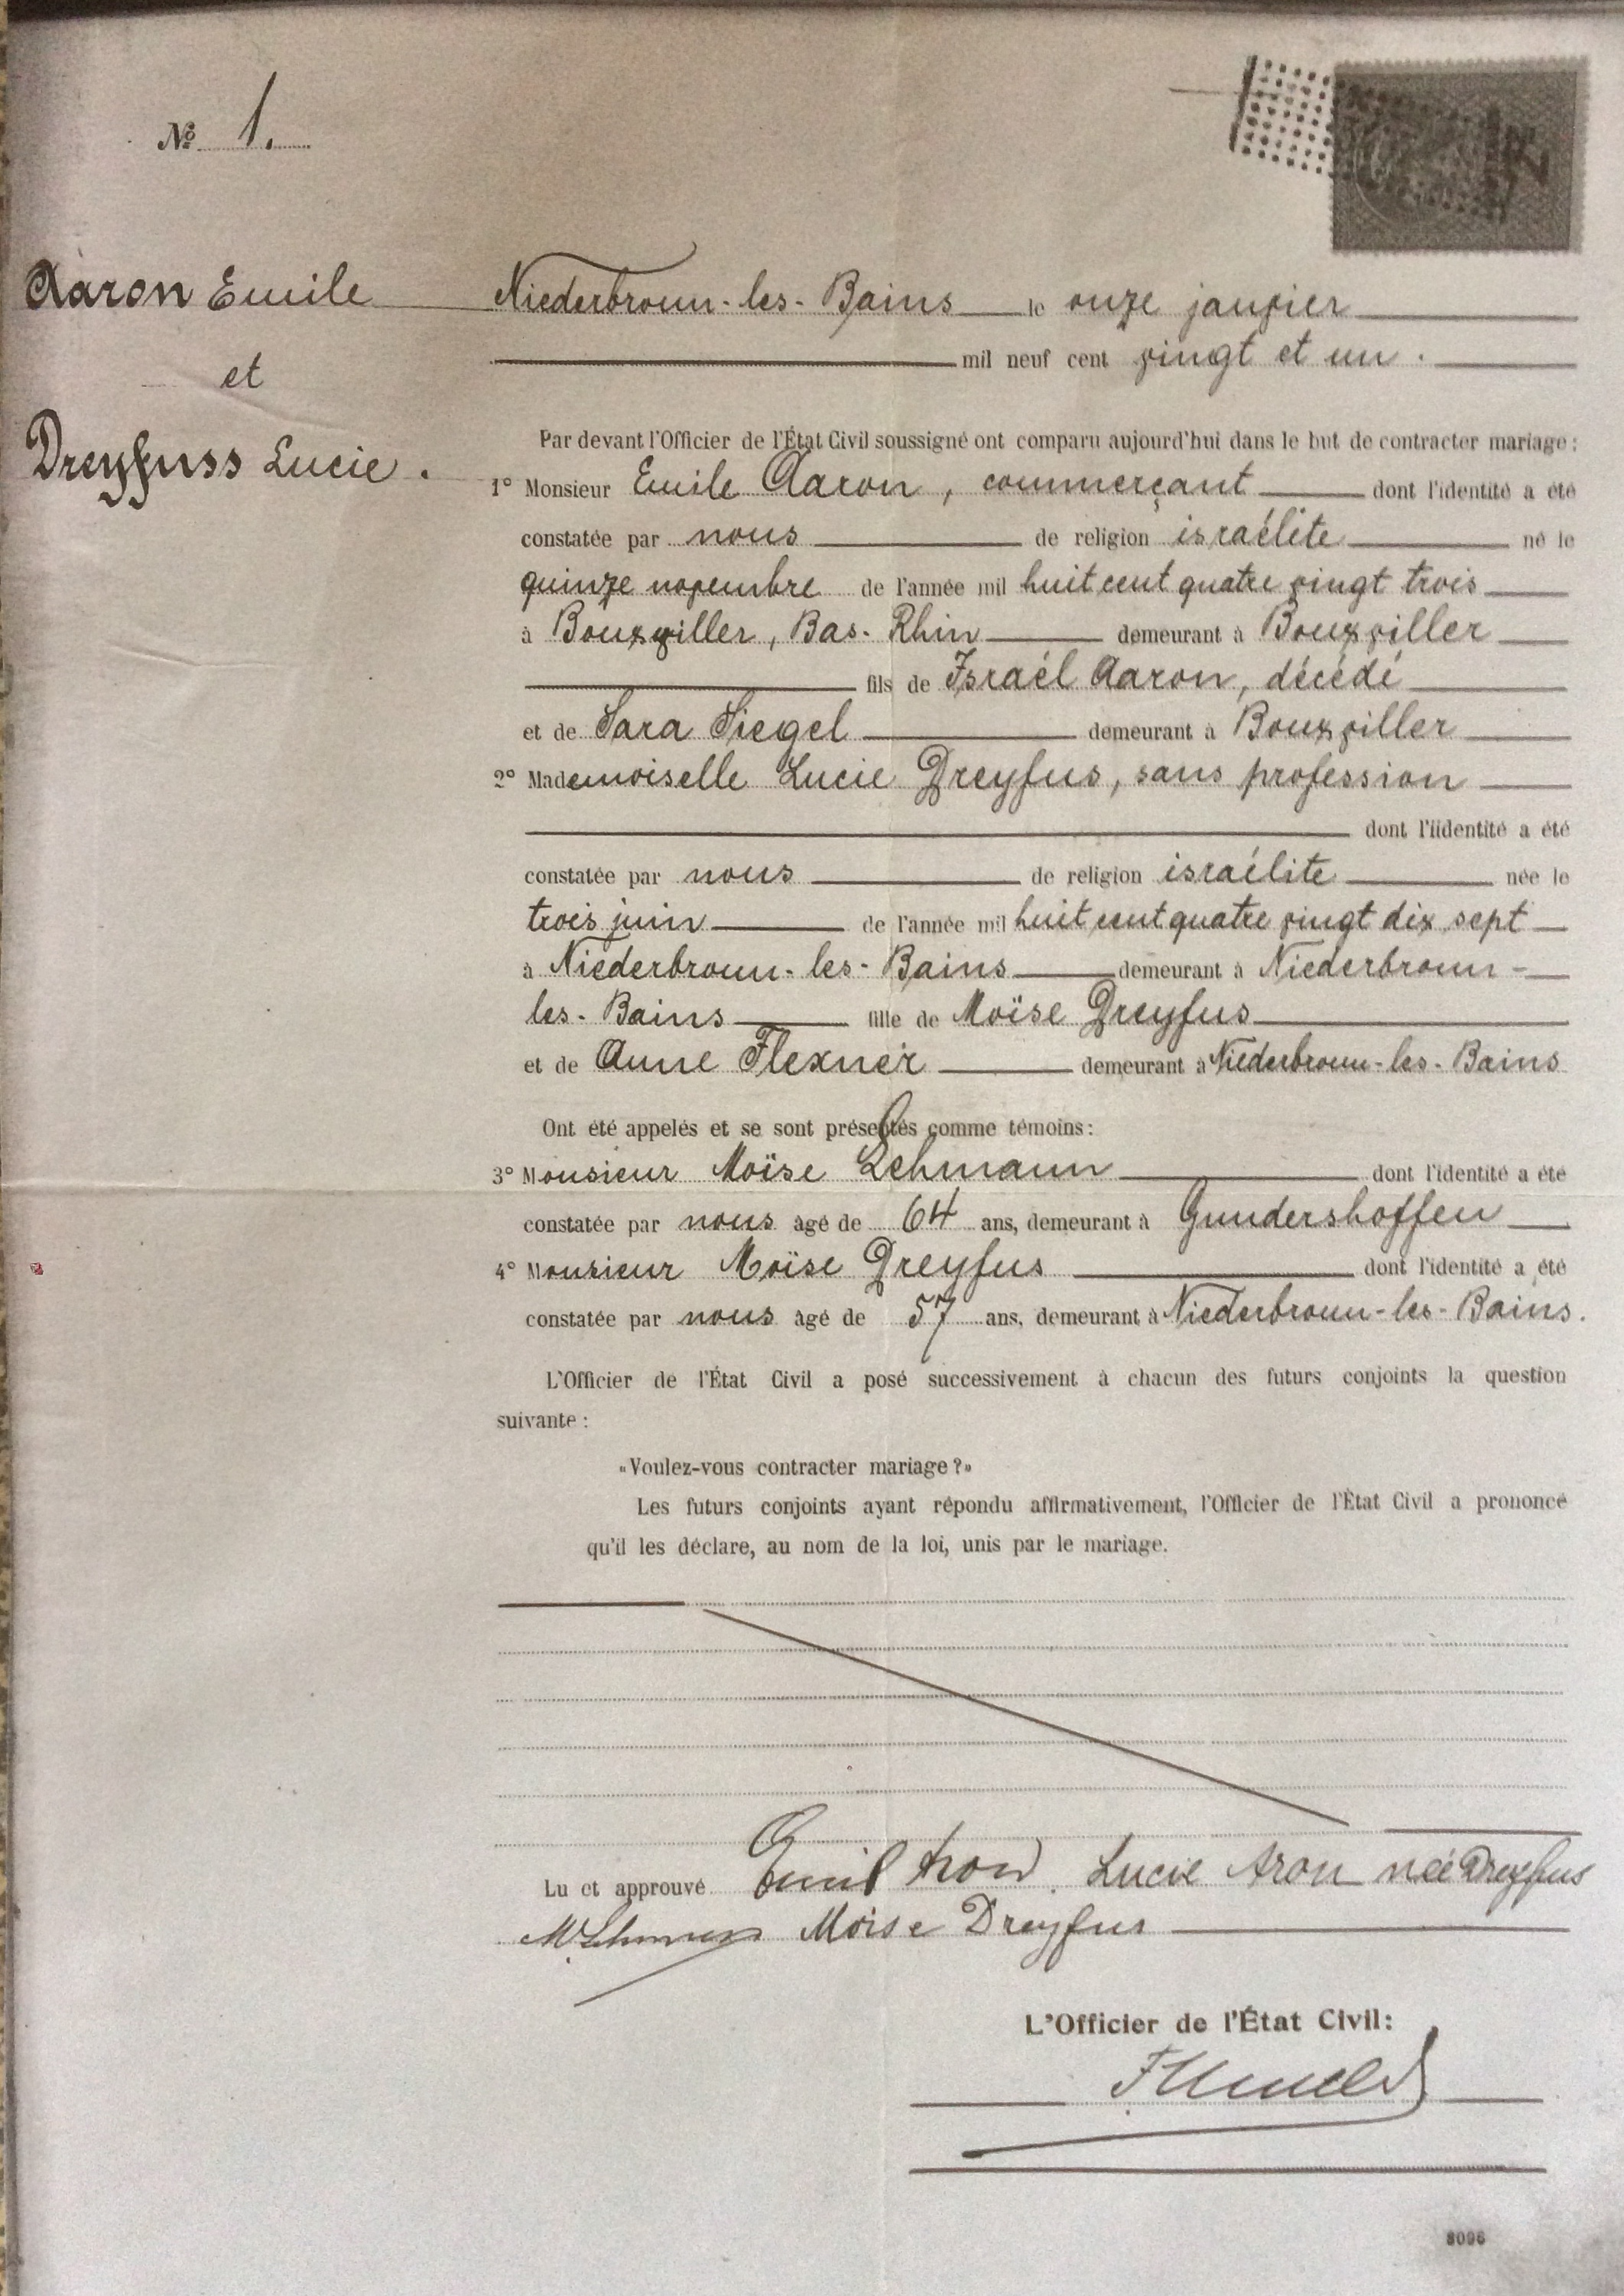 № 1.
Aaron Emile
et
Dreyfuss Lucie.
Niederbronn-les-Bains le onze janvier
mil neuf cent vingt et un.
Par devant l'Officier de l'État Civil soussigné ont comparu aujourd'hui dans le but de contracter mariage:
1° Monsieur Emile Aaron, commerçant dont l'identité a été
constatée par nous de religion israélite né le
quinze novembre de l'année mil huit cent quatre vingt trois
à Bouxviller, Bas-Rhin demeurant à Bouxviller
fils de Israél Aaron, décédé
et de Sara Siegel demeurant à Bouxviller
2° Mademoiselle Lucie Dreyfus, sans profession
dont l'iidentité a été
constatée par nous de religion israélite née le
trois juin de l'année mil huit cent quatre vingt dix sept
à Niederbronn-les-Bains demeurant à Niederbronn-
les-Bains fille de Moïse Dreyfus
et de Anne Flexner demeurant à Niederbronn-les-Bains
Ont été appelés et se sont présentés comme témoins:
3° Monsieur Moïse Lehmann dont l'identité a été
constatée par nous âgé de 64 ans, demeurant à Gundershoffen
4° Monsieur Moïse Dreyfus dont l'identité a été
constatée par nous âgé de 57 ans, demeurant à Niederbronn-les-Bains.
L'Officier de l'État Civil a posé successivement à chacun des futurs conjoints la question
suivante:
«Voulez-vous contracter mariage?»
Les futurs conjoints ayant répondu affirmativement, l'Officier de l'État Civil a prononcé
qu'il les déclare, au nom de la loi, unis par le mariage.
Lu et approuvé Emil Aron. Lucie Aron née Dreyfus
Moïse Dreyfus
L'Officier de l'État Civil:
8096